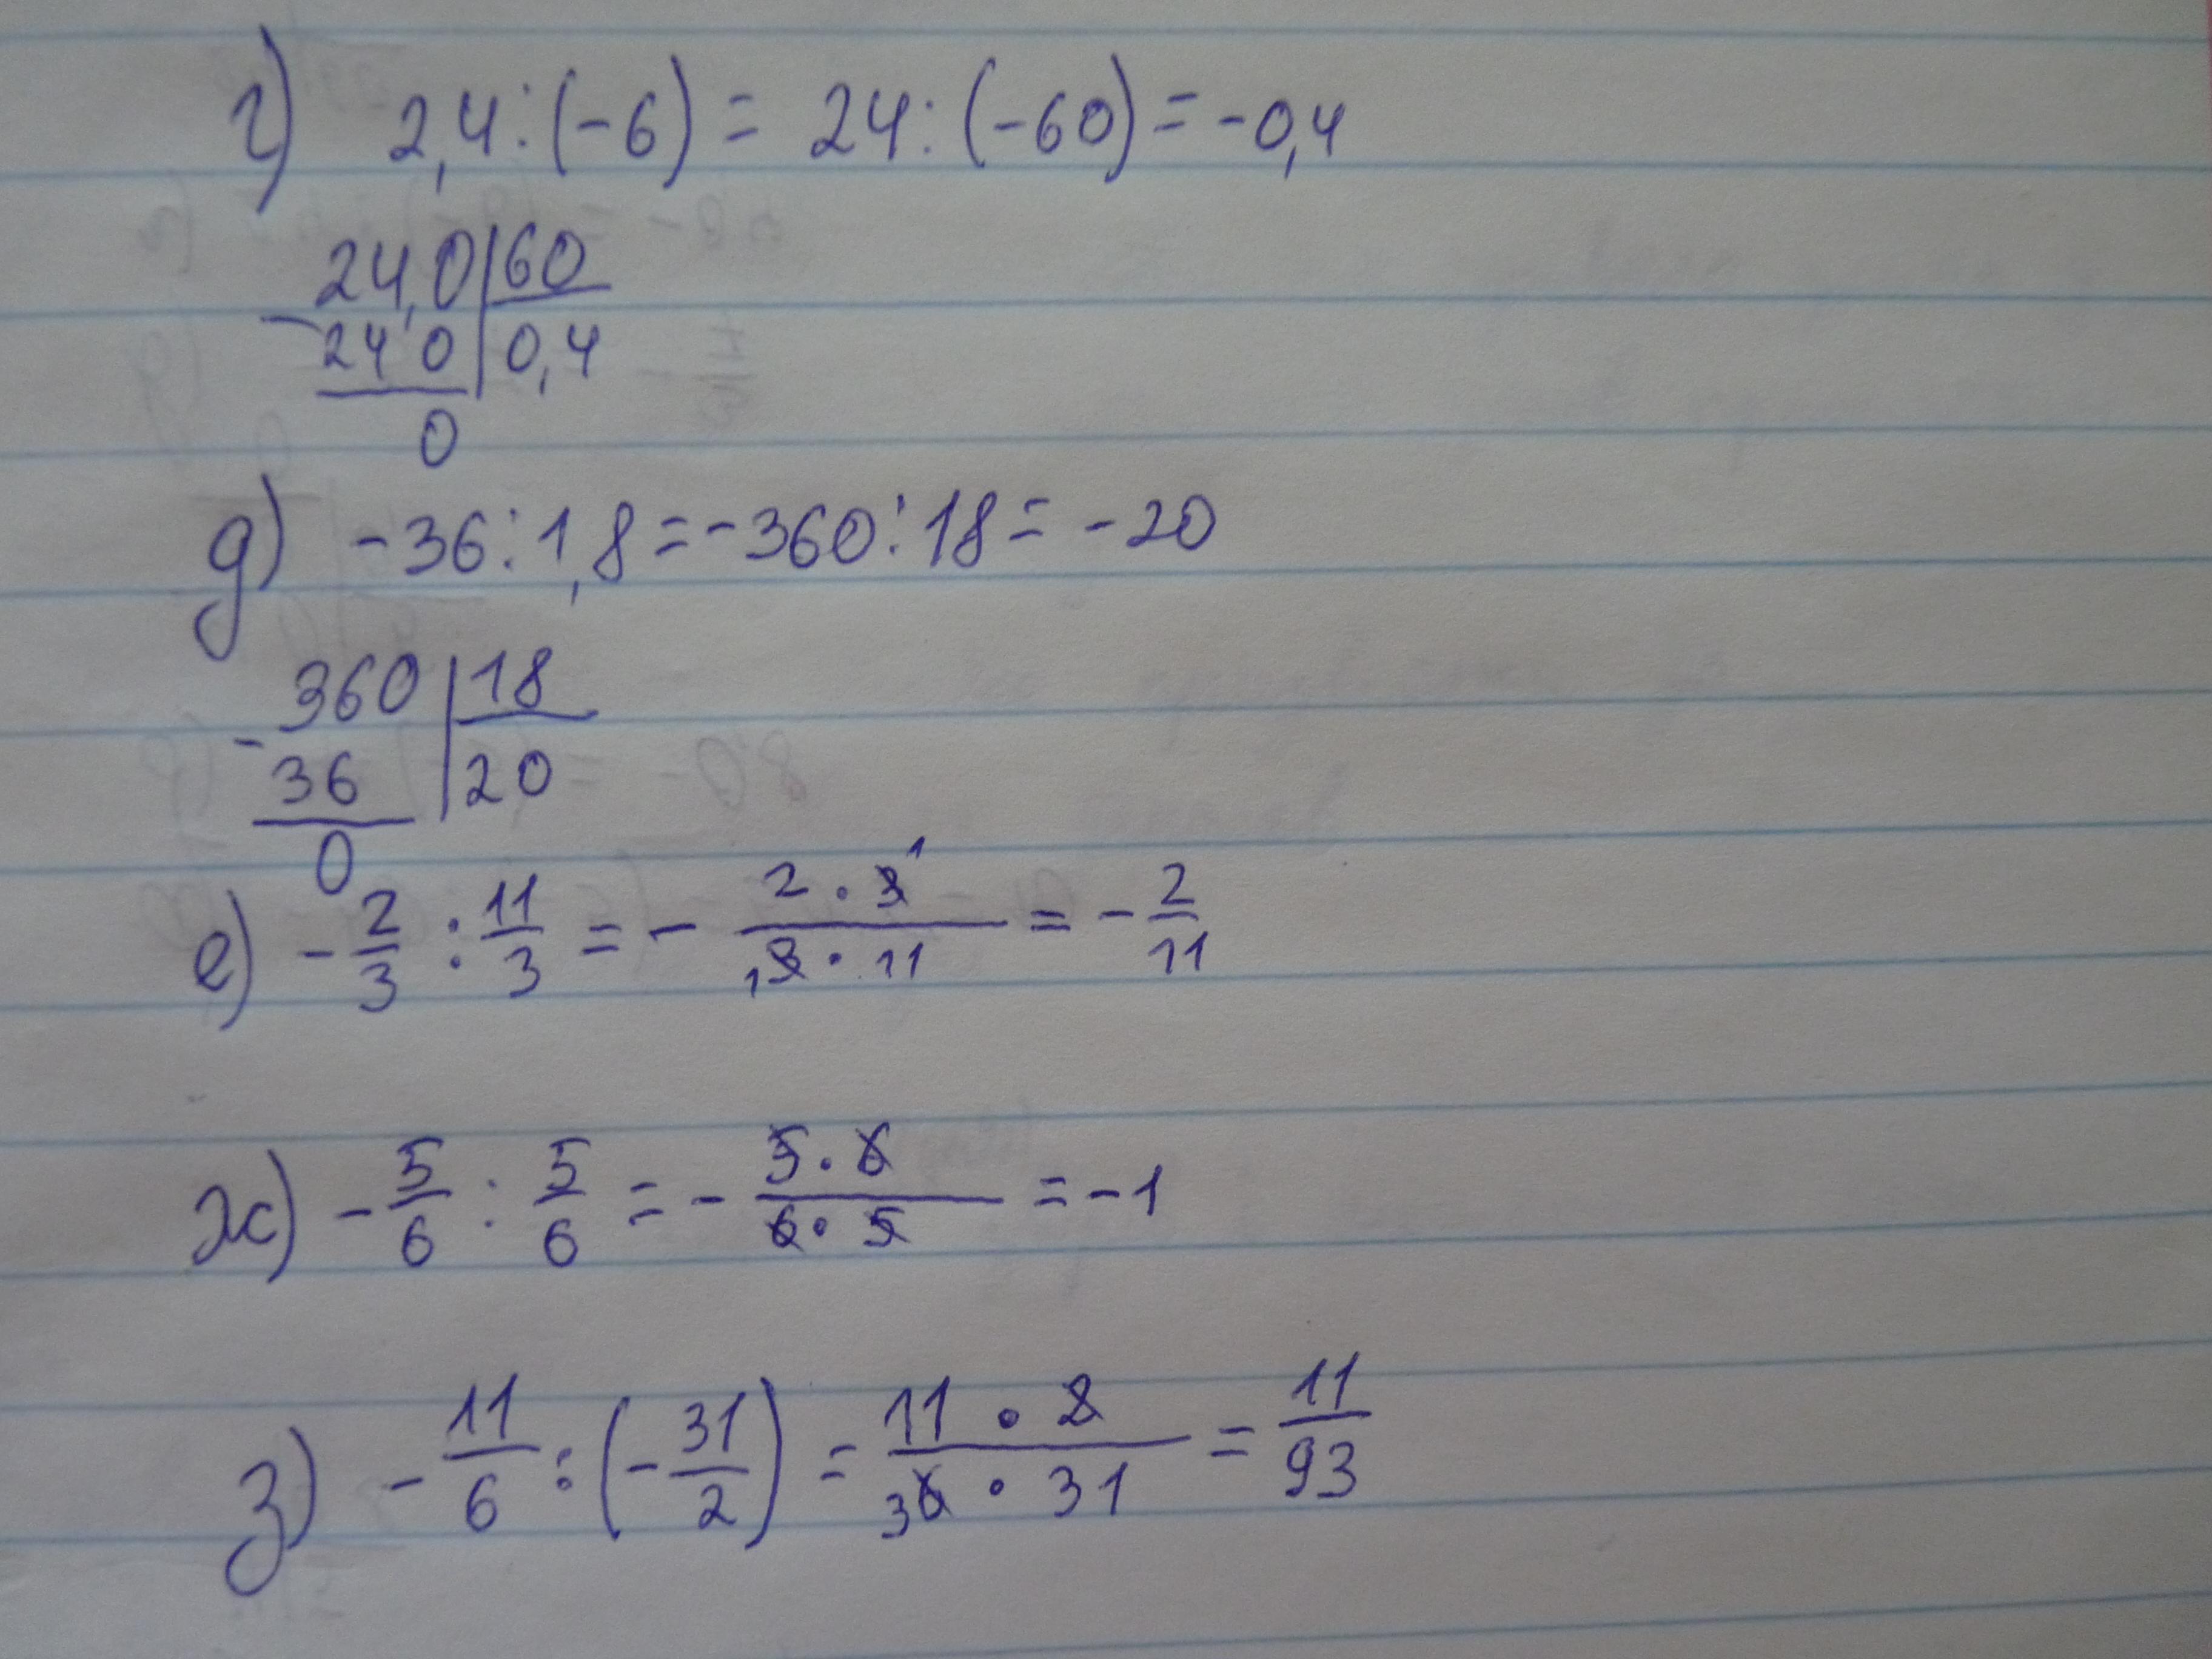 г) 2,4 : (-6) = 24 : (-60) = -0,4
24,0 | 60
- 24 0 | 0,4
0
д) -36 : 1,8 = -360 : 18 = -20
360 | 18
- 36 | 20
0
е) - 2/3 : 11/3 = - 2 · 3 1 / 1 3 · 11 = - 2/11
ж) - 5/6 : 5/6 = - 5 · 6 / 6 · 5 = -1
з) - 11/6 : (- 31/2) = 11 · 2 / 3 6 · 31 = 11/93